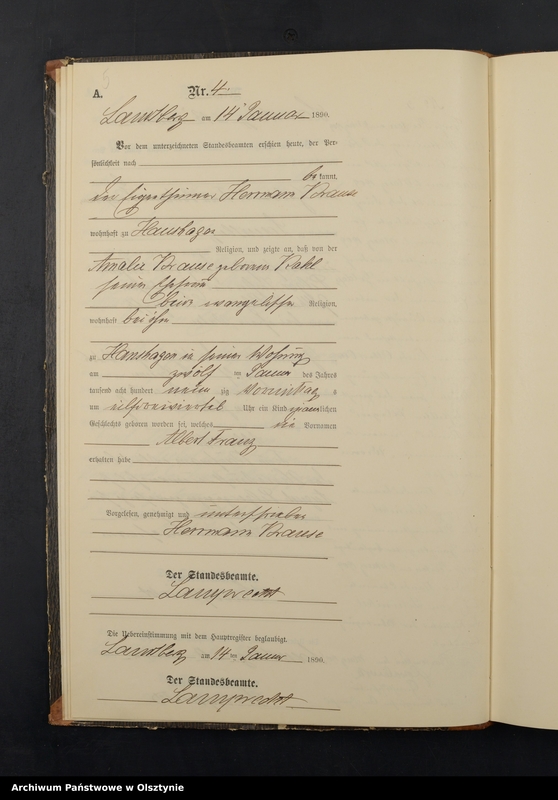 5
A.
Nr. 4.
Landsberg am 14 Januar 1890.
Vor dem unterzeichneten Standesbeamten erschien heute, der Per-
sönlichkeit nach
bekannt,
der Eigenthümer Hermann Krause
wohnhaft zu Hanshagen
Religion, und zeigte an, daß von der
Amalie Krause geborene Kahl
seiner Ehefrau
beide evangelischer Religion,
wohnhaft bei ihm
zu Hanshagen in seiner Wohnung
am zwölf ten Januar des Jahres
tausend acht hundert neun zig Vormittag s
um Uhr ein Kind männlichen
Geschlechts geboren worden sei, welches die Vornamen
Albert Franz
erhalten habe
Vorgelesen, genehmigt und unterschrieben
Hermann Krause
Der Standesbeamte.
Lamprecht
Die Uebereinstimmung mit dem Hauptregister beglaubigt.
Landsberg am 14 ten Januar 1890.
Der Standesbeamte.
Lamprecht
Archiwum Państwowe w Olsztynie